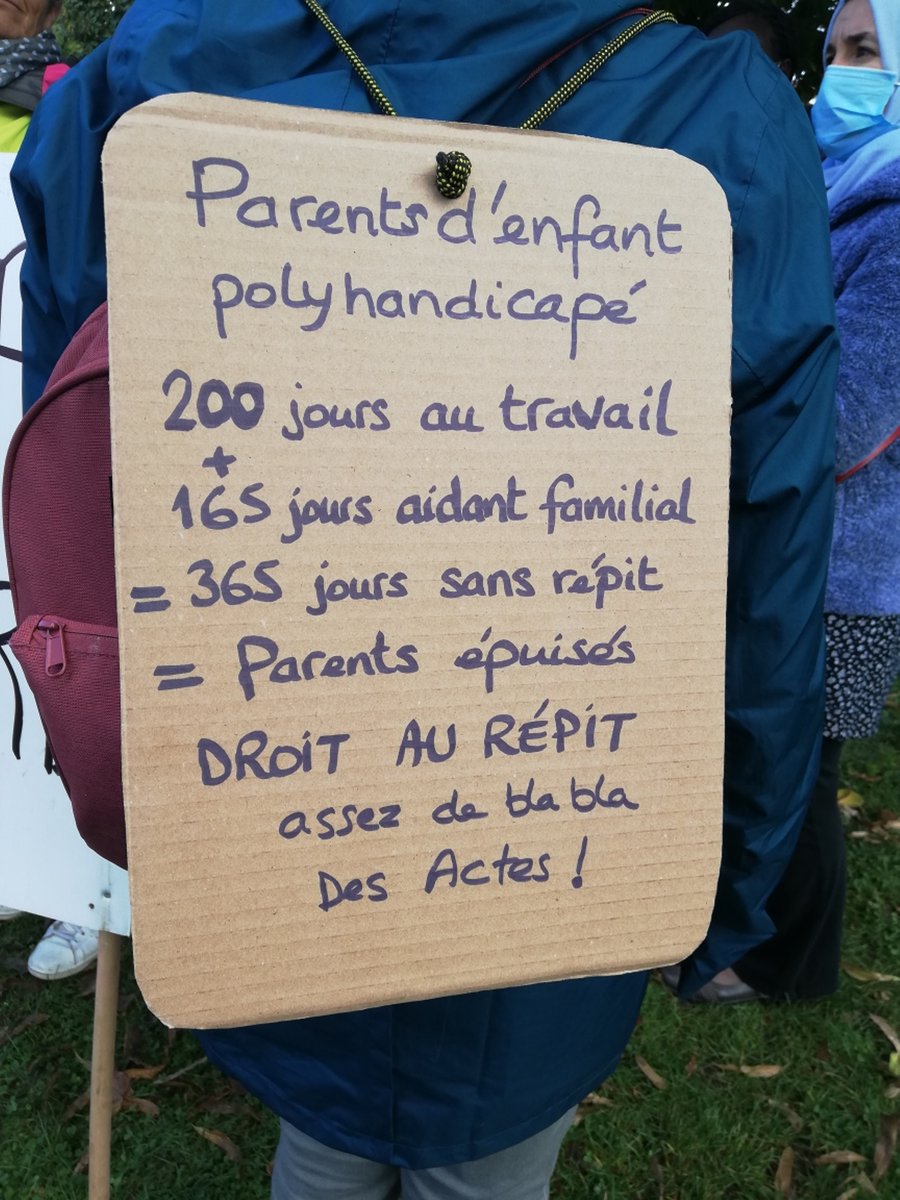 Parents d'enfant
polyhandicapé
200 jours au travail
+
165 jours aidant familial
= 365 jours sans répit
= Parents épuisés
DROIT AU RÉPIT
assez de blabla
Des Actes !